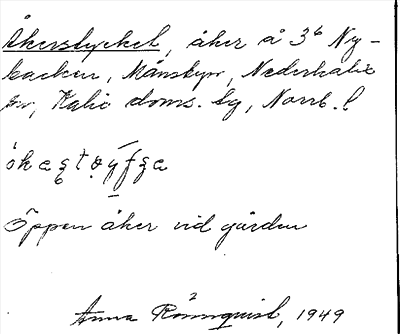 Åkerstycket, åker å 3⁶ Ny-
backen, Månsbyn, Nederkalix
sn, Kalix doms. lg, Norrb. l
Öppen åker vid gården
Anna Rönnquist, 1949